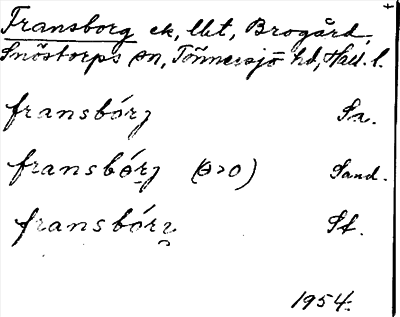 Fransborg ek, lht, Brogård,
Snöstorps sn, Tönnersjö hd, Hall. l.
fransbórj Sa.
fransbórj (o>o) Sand.
fransbórj St.
1954.